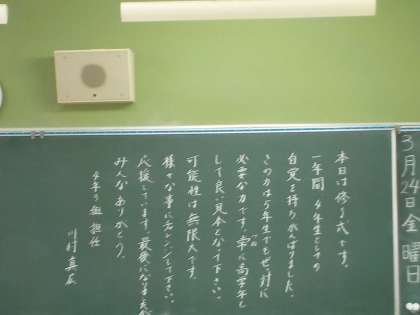 3月24日金曜日
本日は修了式です。
一年間 4年生としての
自覚を持ちがんばりました。
この力は5年生でもぜったいに
必要な力です。常に高学年と
して良い見本となって下さい。
可能性は無限大です。
様々な事にチャレンジして下さい。
応援しています。最後になりますが
みんなありがとう。
4年 組 担任
川村真